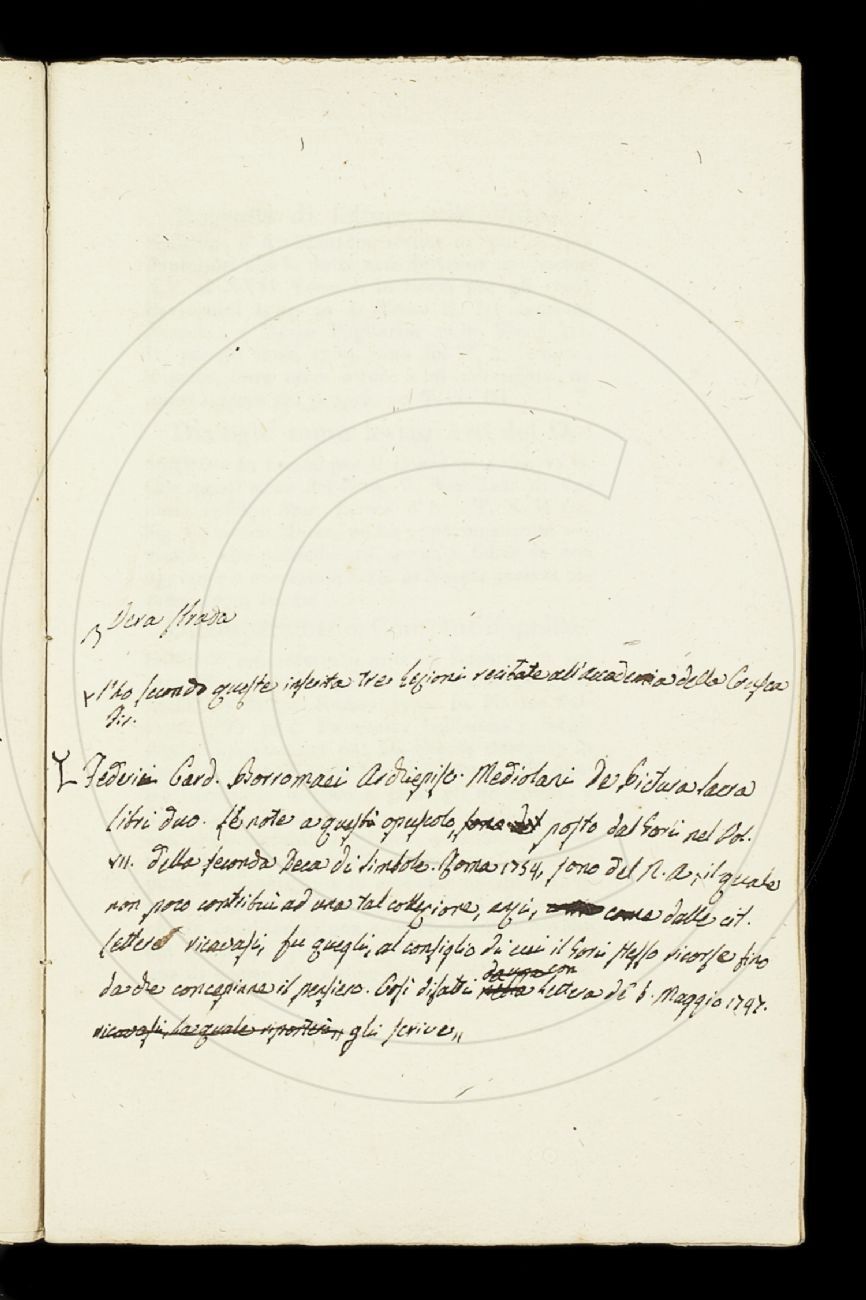 Vera strada
l'ho secondo queste inserita tre Lezioni recitate all'Accademia della Crusca
Fir.
Federici Card. Borromaei Archiepisc. Mediolani De Pictura sacra
libri duo. Le note a questo opuscolo, posto dal Gori nel Vol.
VII. della seconda Deca di Simbole. Roma 1754, sono del N. A., il quale
non poco contribuì ad una tal collezione, anzi, come dalle cit.
lettere ricavasi, fu quegli, al consiglio di cui il Gori stesso ricorse fino
da che concepinne il pensiero. Così difatti da una con lettera de' 6. Maggio 1747.
ricavasi, la quale gli scrive„